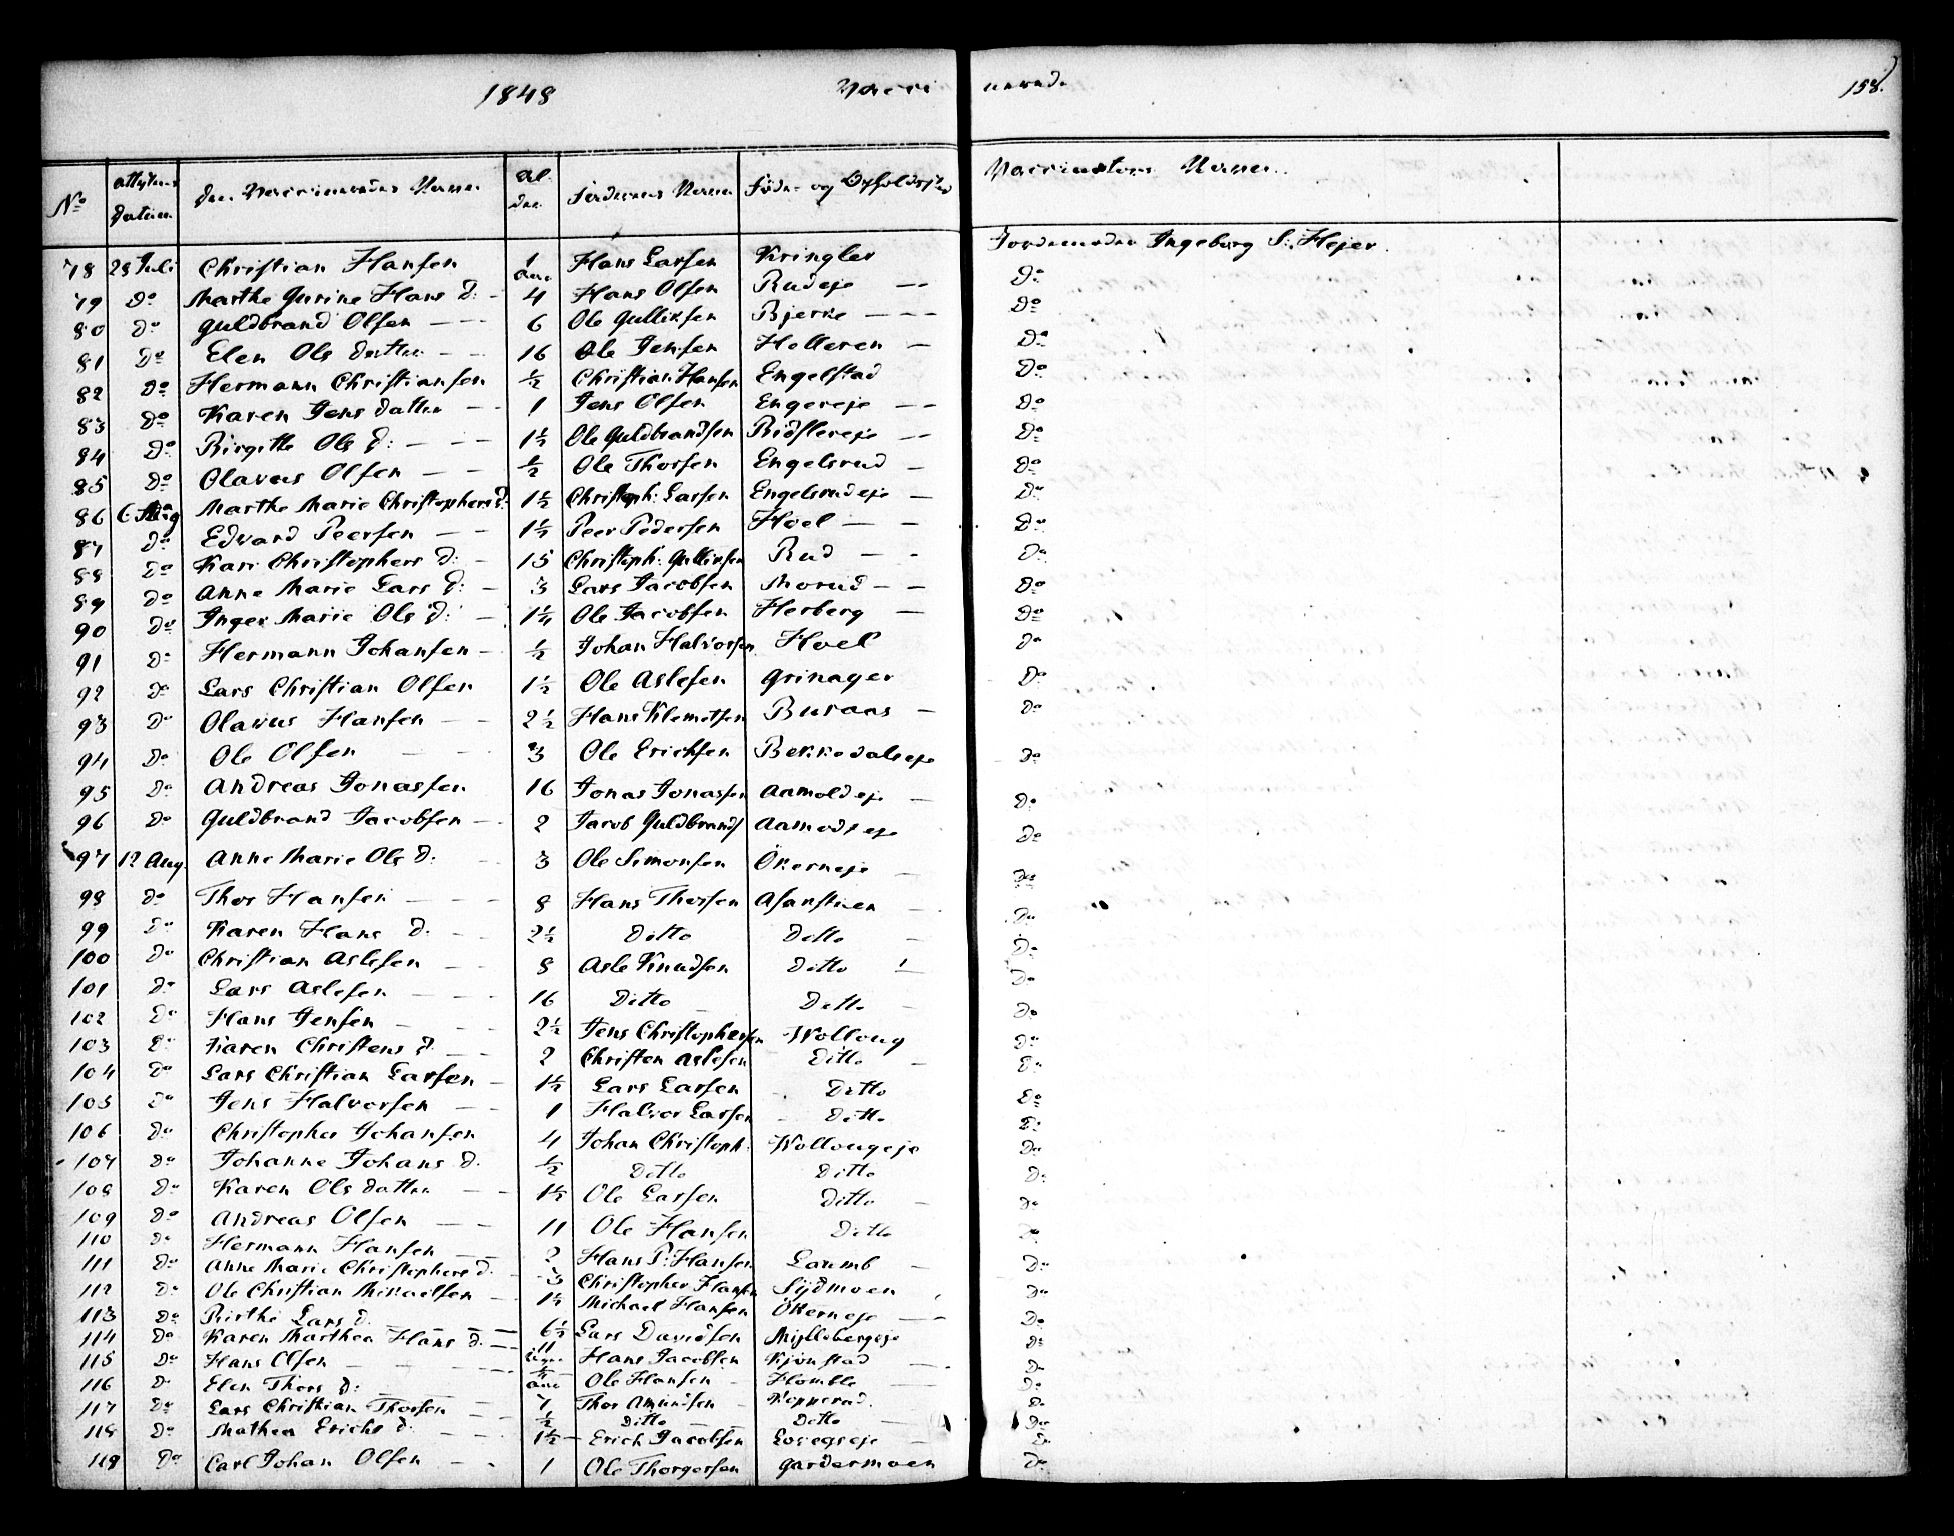 1848 Vacci nerede 158.
No Attestens Datum Den Vaccineredes Navn Alder Fædrenes Navne Føde- og Opholdsted Vaccinators Navn.
78 28 Juli Christian Hansen 1 Aar Hans Larsen Kringler Jordemoder Ingeborg S: Hejer.
79 Do Marthe Gurine Hans D: - 4 Hans Olsen Rudeje -- Do
80 Do Guldbrand Olsen --- 6 Ole Gulliksen Bjerke --- Do
81 Do Elen Ols datter -- 16 Ole Jensen Holleren - Do
82 Do Hermann Christiansen ½ Christian Hansen Engelstad Do
83 Do Karen Jens datter -- 1 Jens Olsen Engereje -- Do
84 Do Birgitte Ols D: --- 1½ Ole Guldbrandsen Ridslereje -- Do
85 Do Olaves Olsen -- ½ Ole Thorsen Engelsrud - Do
86 6 Aug Marthe Marie Christophers D. 1½ Christoph: Larsen Engelsrudeje - Do
87 Do Edvard Peersen -- 1½ Peer Pedersen Hoel -- Do
88 Do Kari Christophers D: - 15 Christoph: Gulliksen Rud -- Do
89 Do Anne Marie Lars D: - 3 Lars Jacobsen Morud -- Do
90 Do Inger Marie Ols D: - 1¼ Ole Jacobsen Herberg - Do
91 Do Hermann Johansen - ½ Johan Halvorsen Hoel Do
92 Do Lars Christian Olsen 1½ Ole Aslesen Grinager Do
93 Do Olavus Hansen -- 2½ Hans Klemetsen Buraas - Do
94 Do Ole Olsen -- 3 Ole Erichsen Bekkedalseje Do
95 Do Andreas Jonassen 16 Jonas Jonassen Aamoldeje - Do
96 Do Guldbrand Jacobsen - 2 Jacob Guldbrands Aamodseje Do
97 12 Aug. Anne Marie Ols D: - 3 Ole Simonsen Økerneje - Do
98 Do Thor Hansen --- 8 Hans Thorsen Asanstuen - Do
99 Do Karen Hans D. -- 2½ Ditto Ditto - Do
100 Do Christian Aslesen -- 8 Asle Knudsen Ditto - Do
101 Do Lars Aslesen -- 16 Ditto - Ditto - Do
102 Do Hans Jensen --- 2½ Jens Christophersen Wolloug Do
103 Do Karen Christens D. -- 2 Christen Aslesen Ditto - Do
104 Do Lars Christian Larsen - 1½ Lars Larsen Ditto Do
105 Do Jens Halvorsen -- 1 Halvor Larsen Ditto Do
106 Do Christopher Johansen 4 Johan Christoph: Wollougeje Do
107 Do Johanne Johans D. ½ Ditto Ditto Do
108 Do Karen Ols datter -- 1½ Ole Larsen Ditto - Do
109 Do Andreas Olsen -- 11 Ole Hansen Ditto Do
110 Do Hermann Hansen -- 2 Hans P: Hansen Laumb - Do
111 Do Anne Marie Christophers D. - 3 Christopher Hansen Sydmoen Do
112 Do Ole Christian Mikaelsen - 1½ Michael Hansen Økerneje -- Do
113 Do Birthe Lars D. --- 6½ Lars Davidsen Myllebergeje Do
114 Do Karen Marthea Hans D. - 11 Hans Jacobsen Kjonstad -- Do
115 Do Hans Olsen --- Ole Hansen - Homble -- Do
116 Do Elen Thors D: -- 7 Thor Amundsen Kopperud. Do
117 Do Lars Christian Thorsen -- ½ Ditto -- Ditto -- Do
118 Do Mathea Erichs D. -- 1½ - Erich Jacobsen Lovegseje - Do
119 Do Carl Johan Olsen -- 1 Ole Thorgersen Gardermoen Do